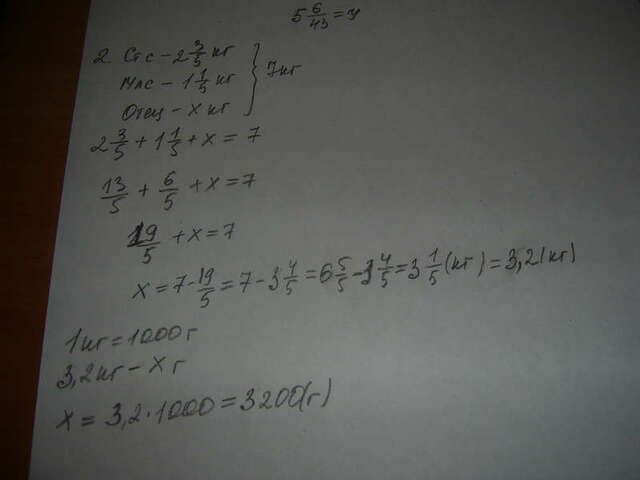 5 6/43 = y
2. Ст.с – 2 3/5 кг
Мл с – 1 1/5 кг } 7 кг
Отец – x кг
2 3/5 + 1 1/5 + x = 7
13/5 + 6/5 + x = 7
19/5 + x = 7
x = 7 - 19/5 = 7 - 3 4/5 = 6 5/5 - 3 4/5 = 3 1/5 (кг) = 3,2 (кг)
1 кг = 1000 г
3,2 кг – x г
x = 3,2 · 1000 = 3200 (г)